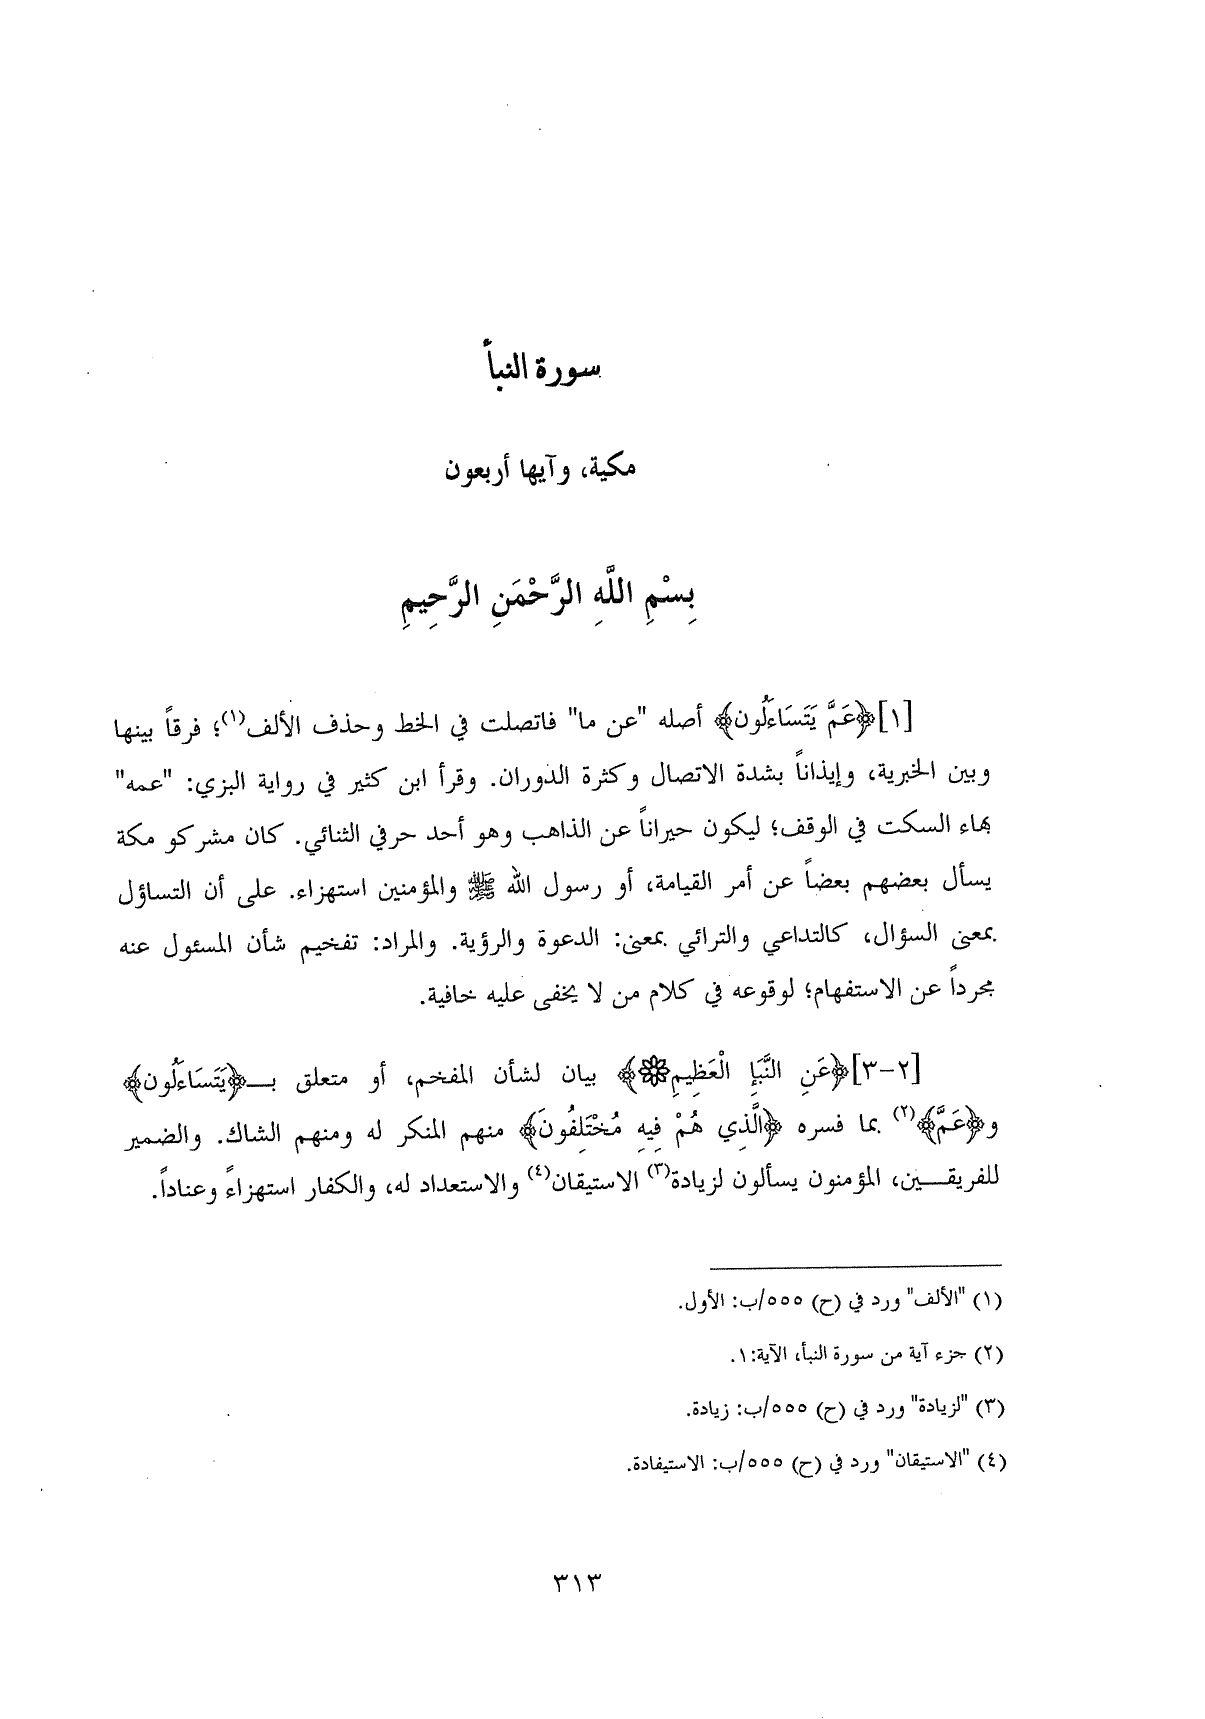 سورة النبأ
مكية، وآيها أربعون
بِسْمِ اللَّهِ الرَّحْمَنِ الرَّحِيمِ
[١]﴿عَمَّ يَتَسَاءَلُون﴾ أصله "عن ما" فاتصلت في الخط وحذف الألف(١)؛ فرقاً بينها
وبين الخبرية، وإيذاناً بشدة الاتصال وكثرة الدوران. وقرأ ابن كثير في رواية البزي: "عمه"
بهاء السكت في الوقف؛ ليكون حيراناً عن الذاهب وهو أحد حرفي الثنائي. كان مشركو مكة
يسأل بعضهم بعضاً عن أمر القيامة، أو رسول الله ﷺ والمؤمنين استهزاء. على أن التساؤل
بمعنى السؤال، كالتداعي والترائي بمعنى: الدعوة والرؤية. والمراد: تفخيم شأن المسئول عنه
مجرداً عن الاستفهام؛ لوقوعه في كلام من لا يخفى عليه خافية.
[٢-٣]﴿عَنِ النَّبَإِ الْعَظِيمِ۝﴾ بيان لشأن المفخم، أو متعلق بــ﴿يَتَسَاءَلُون﴾
و﴿عَمَّ﴾(٢) بما فسره ﴿الَّذِي هُمْ فِيهِ مُخْتَلِفُونَ﴾ منهم المنكر له ومنهم الشاك. والضمير
للفريقــين، المؤمنون يسألون لزيادة(٣) الاستيقان(٤) والاستعداد له، والكفار استهزاءً وعناداً.
(١) "الألف" ورد في (ح) ٥٥٥/ب: الأول.
(٢) جزء آية من سورة النبأ، الآية:١.
(٣) "لزيادة" ورد في (ح) ٥٥٥/ب: زيادة.
(٤) "الاستيقان" ورد في (ح) ٥٥٥/ب: الاستيفادة.
٣١٣